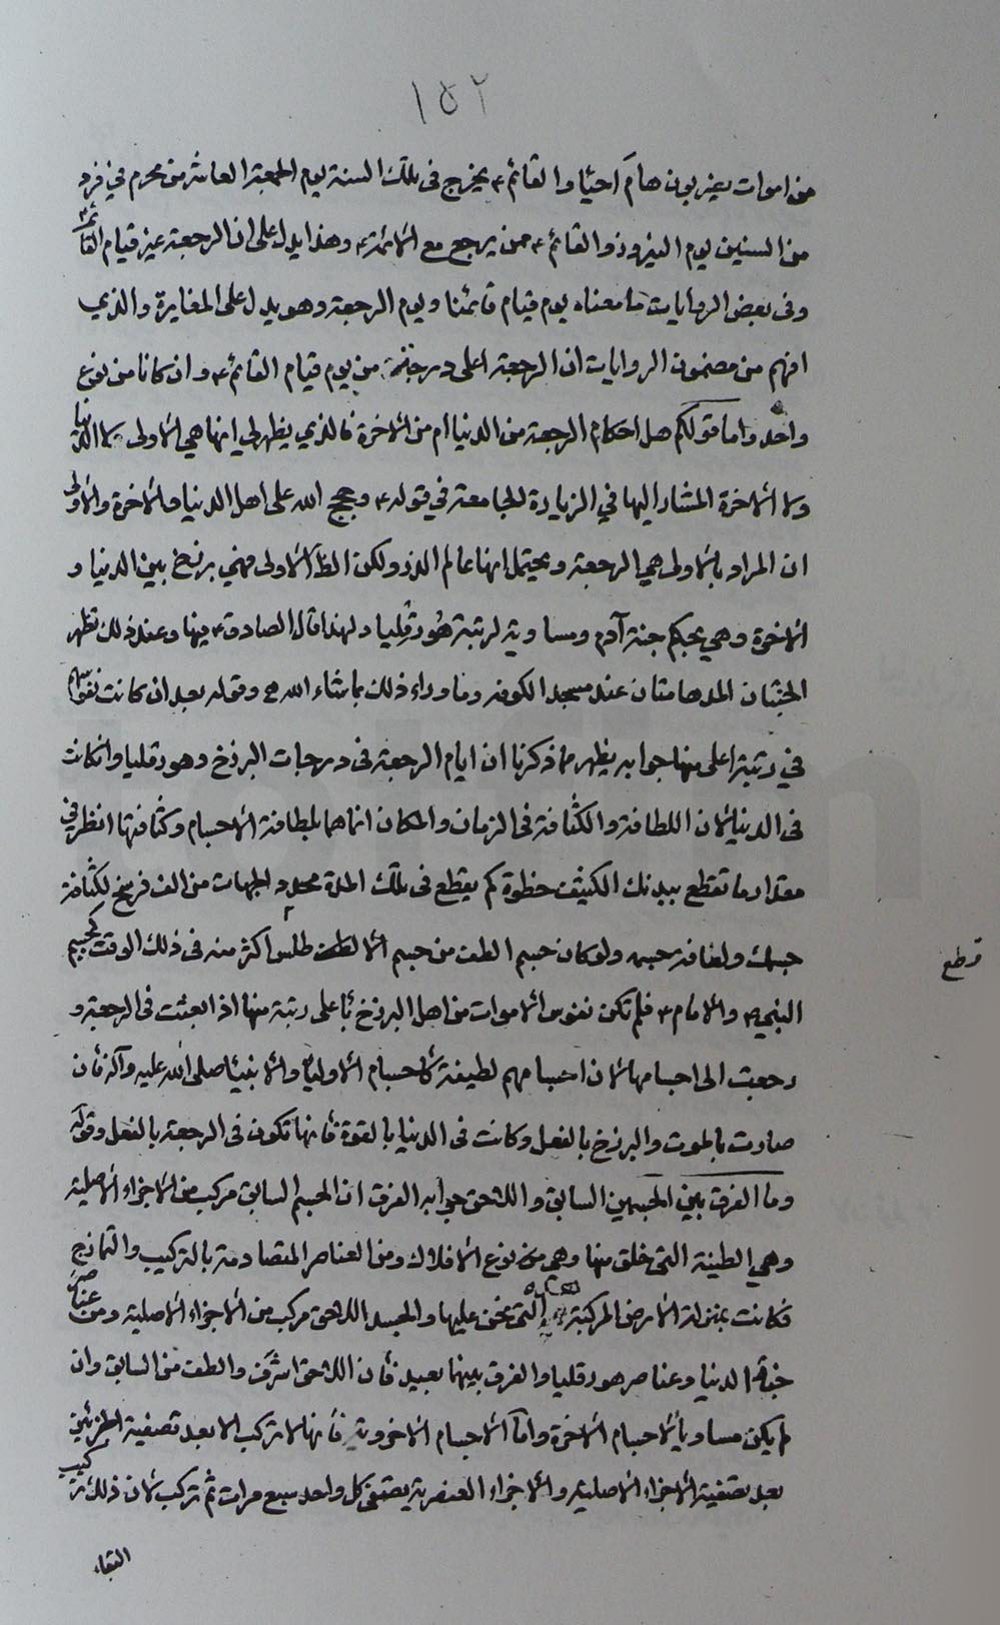 ١٥٢
من اموات يضربون هام احياء والقائم ع يخرج فى تلك السنة يوم الجمعة العاشر من محرم في فرد
من السنين يوم النيروز والقائم ع ممن يرجع مع الائمة ع وهذا يدل على ان الرجعة غير قيام القائم ع
وفى بعض الروايات ما معناه يوم قيام قائمنا ويوم الرجعة وهو يدل على المغايرة والذي
افهم من مضمون الروايات ان الرجعة اعلى درجة من يوم قيام القائم ع وان كانا من نوع
واحد واما قولكم هل احكام الرجعة من الدنيا ام من الاخرة فالذي يظهر لي انها هي الاولى لا الدنيا
ولا الاخرة المشار اليها في الزيارة الجامعة في قوله ع وحجج الله على اهل الدنيا والاخرة والاولى
ان المراد بالاولى هي الرجعة ويحتمل انها عالم الذر ولكن الظ الاولى فهي برزخ بين الدنيا و
الاخرة وهي بحكم جنة آدم ومساوية لرتبة هورقليا ولهذا قال الصادق ع فيها وعند ذلك تظهر
الجنتان المدهامتان عند مسجد الكوفة وما وراء ذلك بما شاء الله وقوله بعد ان كانت نفوسهم
في رتبة اعلى منها جوابه يظهر مما ذكرنا ان ايام الرجعة فى درجات البرزخ وهورقليا وان كانت
فى الدنيا لان اللطافة والكثافة فى الزمان والمكان انما هما بلطافة الاجسام وكثافتها انظر في
مقدار ما تقطع ببدنك الكثيف خطوة كم يقطع فى تلك المدة محدد الجهات من الف فرسخ لكثافة
جسمك ولطافة جسمه ولو كان جسم الطف من جسم الاطلس اكثر منه فى ذلك الوقت كجسم
قطع
النبي ص والامام ع فلم تكن نفوس الاموات من اهل البرزخ باعلى رتبة منها اذا بعثت فى الرجعة و
رجعت الى اجسامها لان اجسامهم لطيفة كاجسام الاولياء والانبياء صلى الله عليه وآله فان
صارت بالموت والبرزخ بالفعل وكانت فى الدنيا بالقوة فانها تكون فى الرجعة بالفعل وقوله
وما الفرق بين الجسمين السابق واللاحق جوابه الفرق ان الجسم السابق مركب من الاجزاء الاصلية
وهي الطينة التى خلق منها وهى من نوع الافلاك ومن العناصر المتصادمة بالتركيب والتمازج
فكانت بمنزلة الارض المركبة التى نحن عليها والجسد اللاحق مركب من الاجزاء الاصلية ومن عناصر
جنة الدنيا وعناصر هورقليا والفرق بينهما بعيد فان اللاحق اشرف والطف من السابق وان
لم يكن مساويا لاجسام الاخرة واما الاجسام الاخروية فانها لا تركب الا بعد تصفية الجزئين
بعد تصفية الاجزاء الاصلية والاجزاء العنصرية يصفى كل واحد سبع مرات ثم تركب لان ذلك تركيب
البقاء